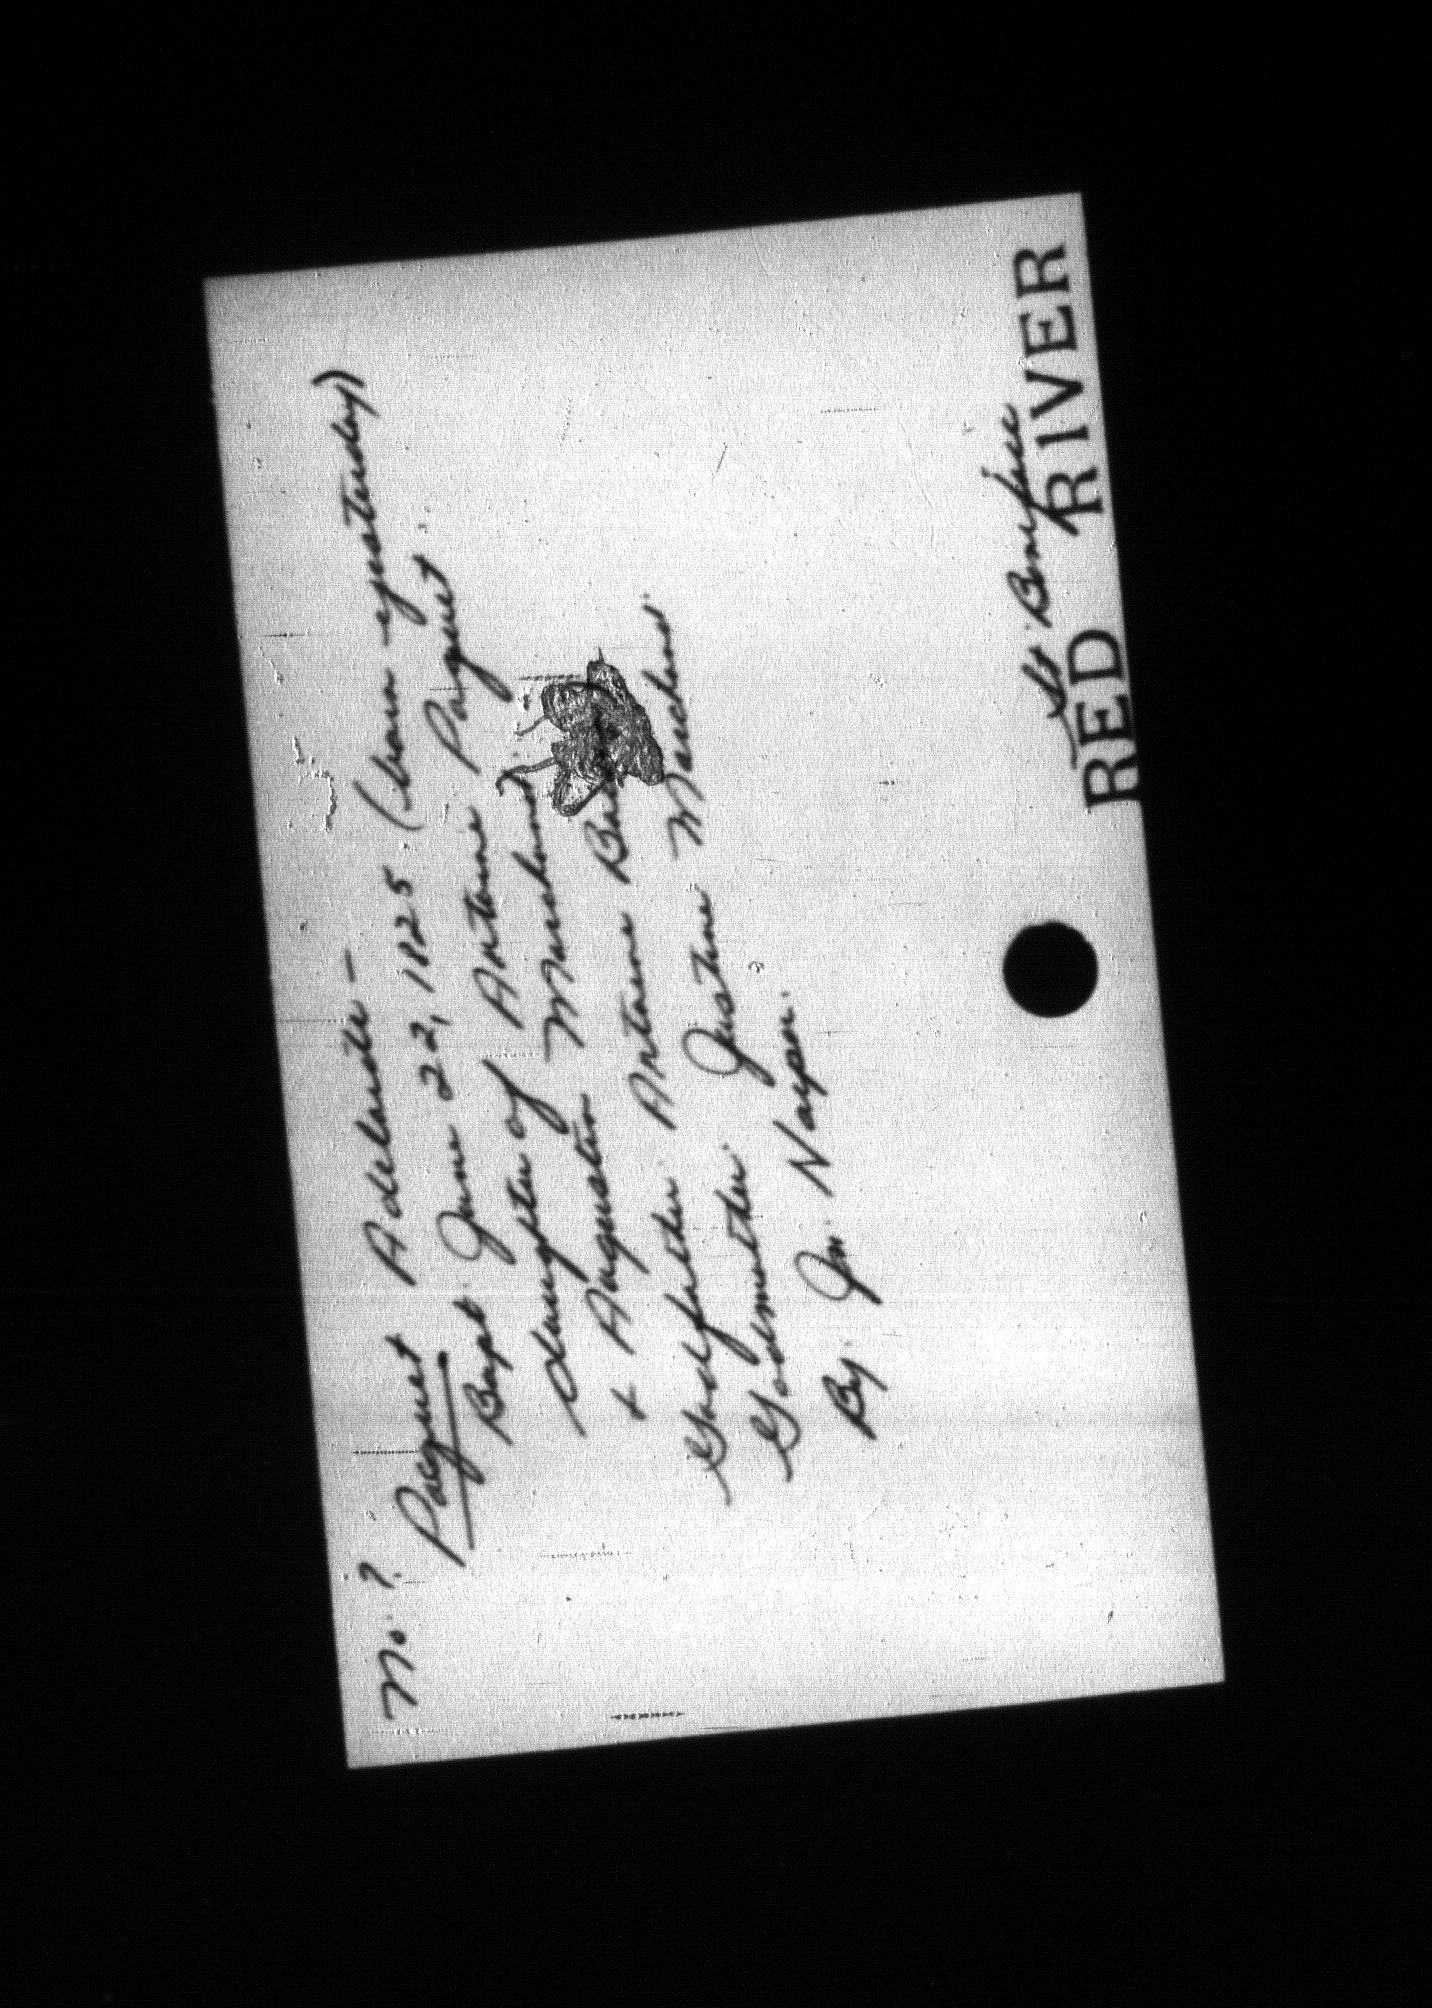 No. ?
Pacquet Adelaide -
Bapt. June 22, 1825 (born yesterday)
daughter of Antoine Paquet
& Augustin Marchand.
Godfather. Antoine
Godmother. Justine Marchand.
By. Jn. Harper.
St. Boniface
RED RIVER